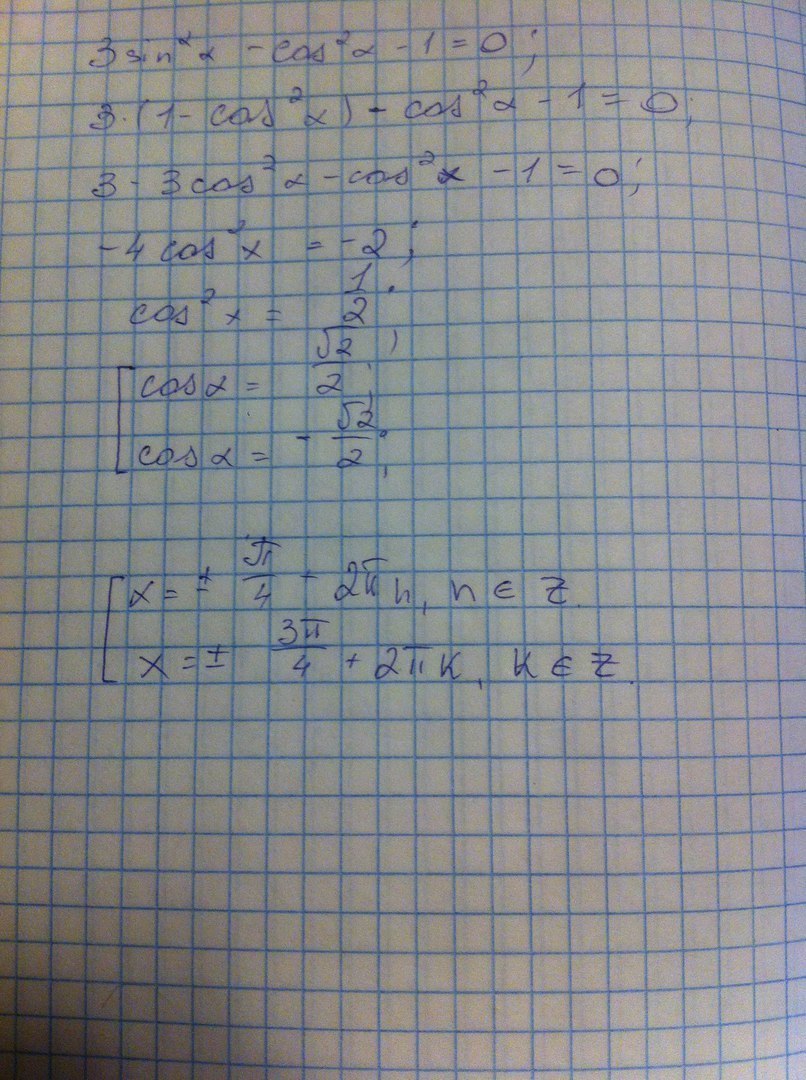 3 sin²x - cos²x - 1 = 0;
3·(1 - cos²x) - cos²x - 1 = 0;
3 - 3cos²x - cos²x - 1 = 0;
-4 cos²x = -2;
cos²x = 1/2;
[ cos x = √2/2;
cos x = - √2/2;
[ x = ± π/4 + 2πn, n ∈ Z.
x = ± 3π/4 + 2πk, k ∈ Z.